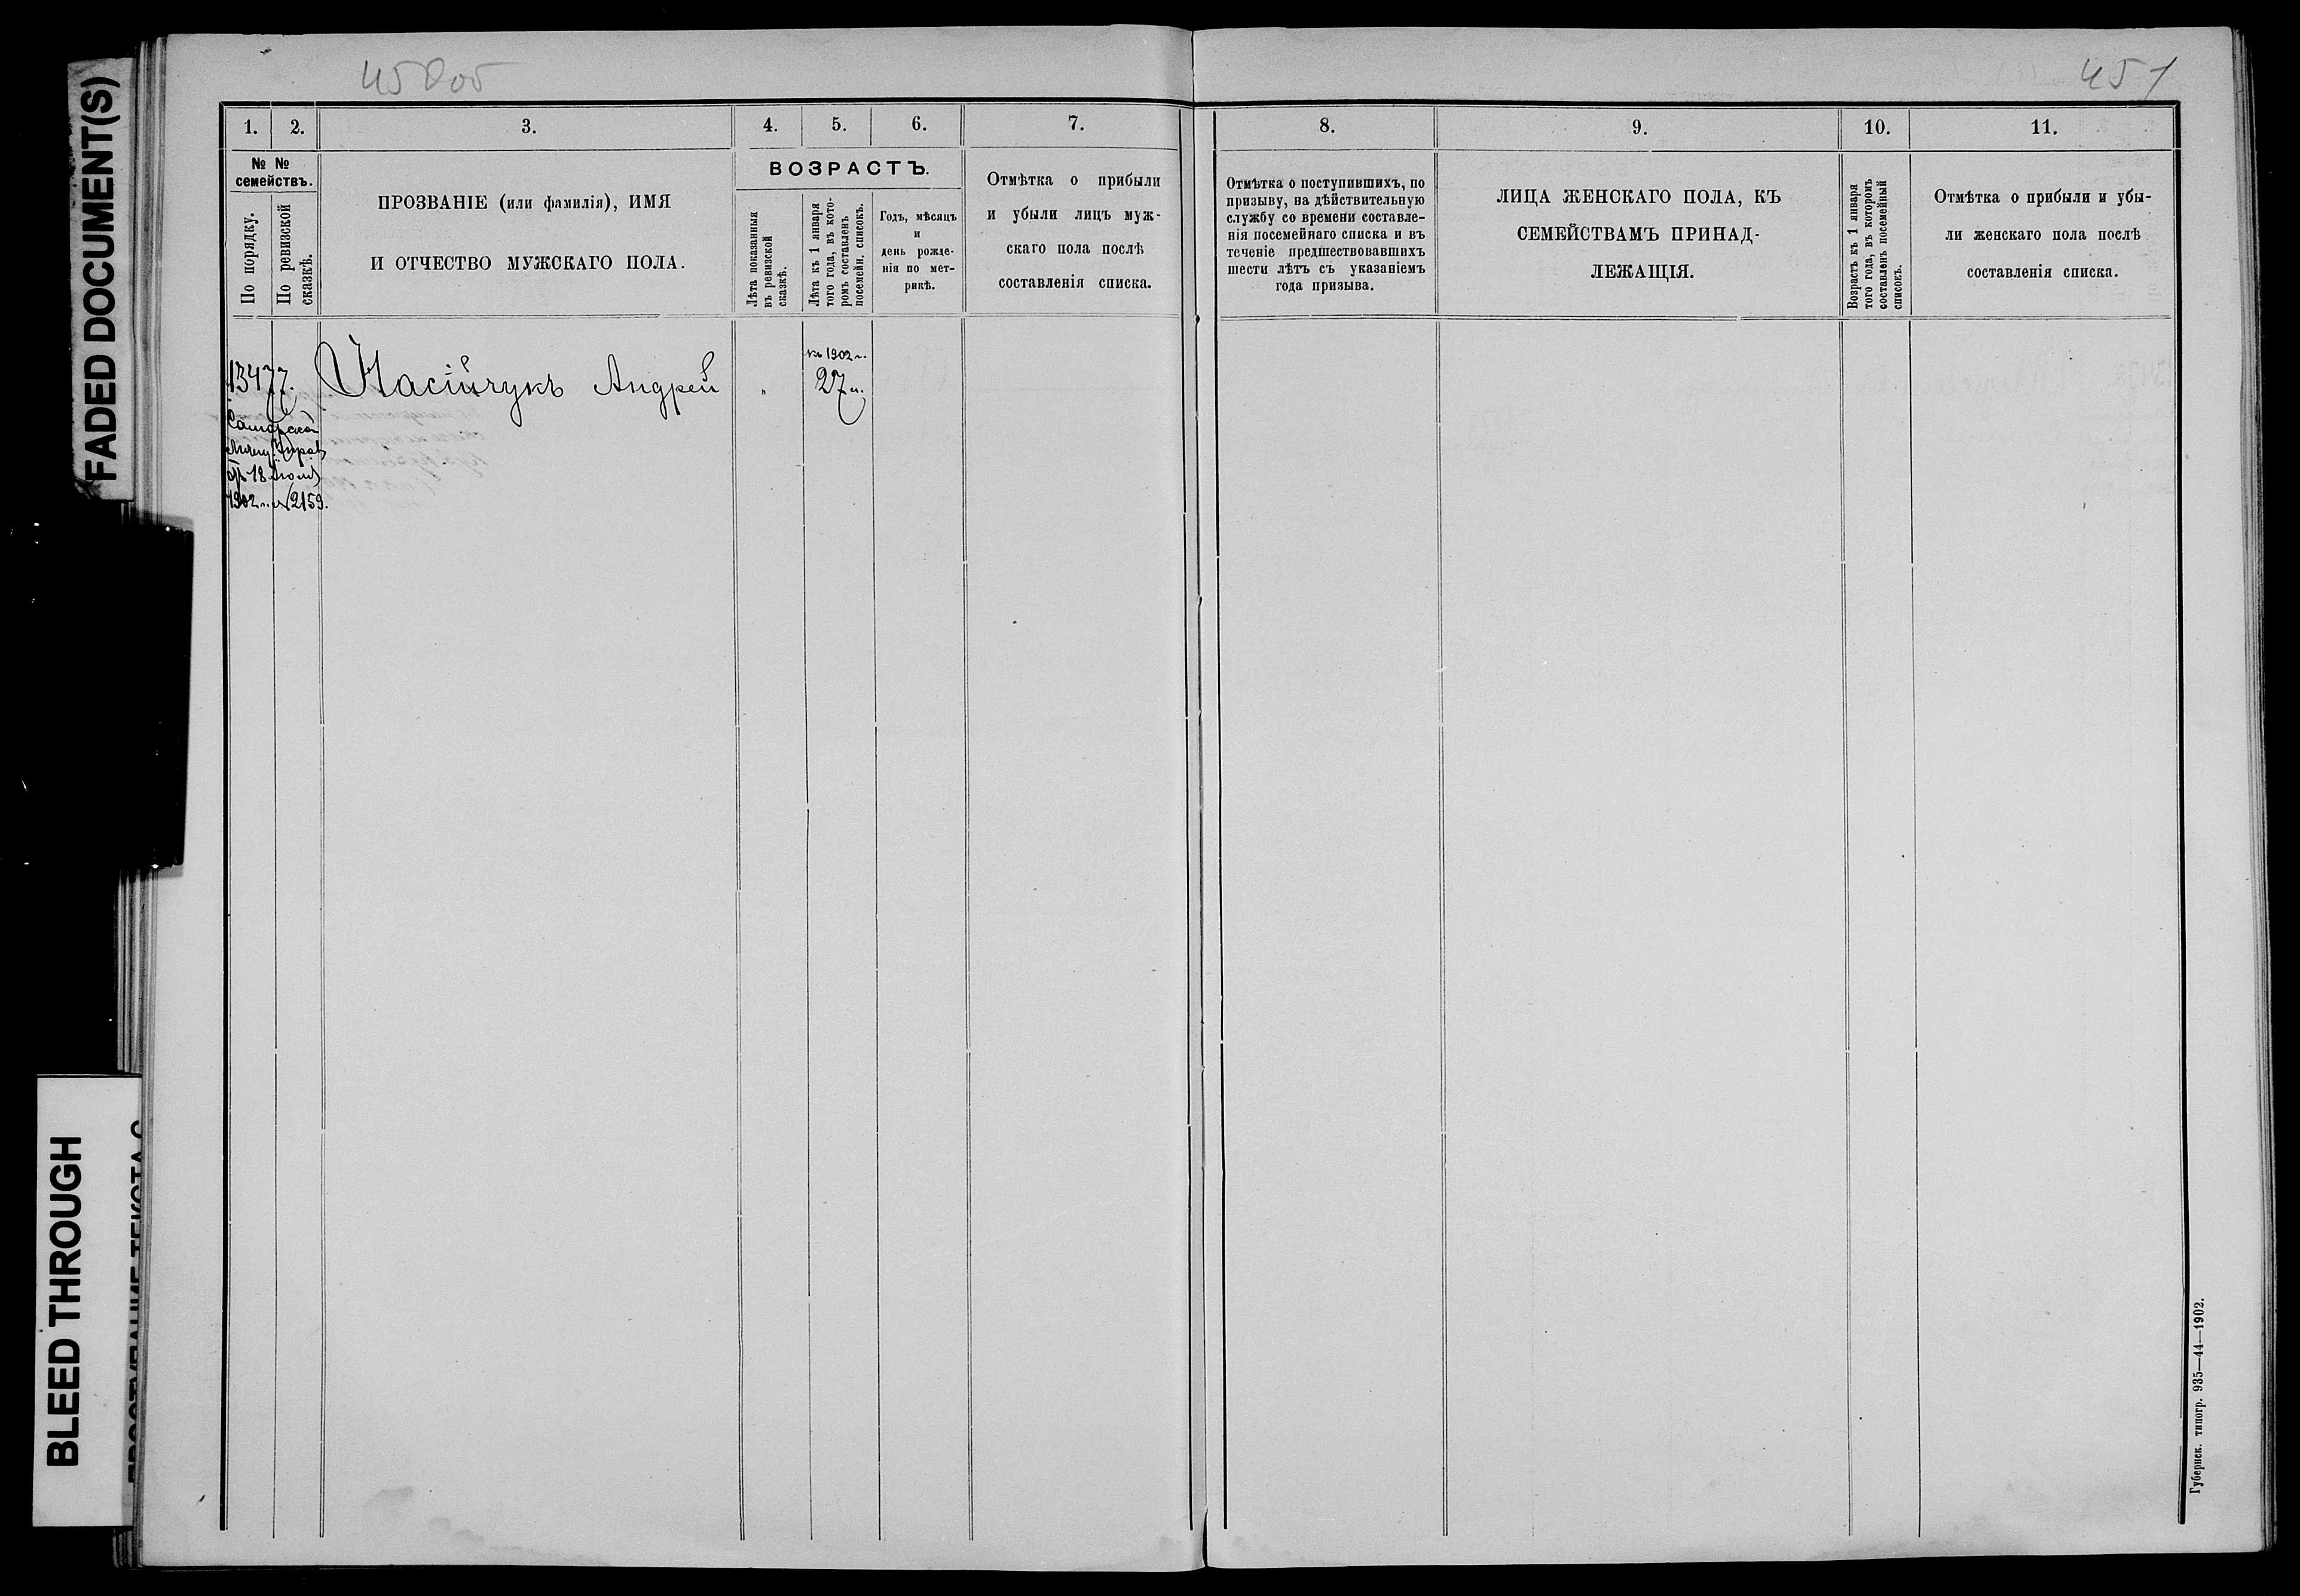 FADED DOCUMENT(S)
BLEED THROUGH
450 об
451
1.
2.
3.
4.
5.
6.
7.
№ №
семействъ.
По порядку.
По ревизской
сказкѣ.
ПРОЗВАНІЕ (или фамилія), ИМЯ
И ОТЧЕСТВО МУЖСКАГО ПОЛА.
ВОЗРАСТЪ.
Лѣта показанныя
въ ревизской
сказкѣ.
Лѣта къ 1 января
того года, въ кото-
ромъ составленъ
посемейн. списокъ.
Годъ, мѣсяцъ
и
день рожде-
нія по мет-
рикѣ.
Отмѣтка о прибыли
и убыли лицъ муж-
скаго пола послѣ
составленія списка.
13477.
Самарской
Мѣщ. Управ
от 18 Іюля
1902 г. № 2159.
Насійчукъ Андрей
"
къ 1902 г.
27 л.
8.
9.
10.
11.
Отмѣтка о поступившихъ, по
призыву, на дѣйствительную
службу со времени составле-
нія посемейнаго списка и въ
теченіе предшествовавшихъ
шести лѣтъ съ указаніемъ
года призыва.
ЛИЦА ЖЕНСКАГО ПОЛА, КЪ
СЕМЕЙСТВАМЪ ПРИНАД-
ЛЕЖАЩІЯ.
Возрастъ къ 1 января
того года, въ которомъ
составленъ посемейный
списокъ.
Отмѣтка о прибыли и убы-
ли женскаго пола послѣ
составленія списка.
Губернск. типогр. 935—44—1902.